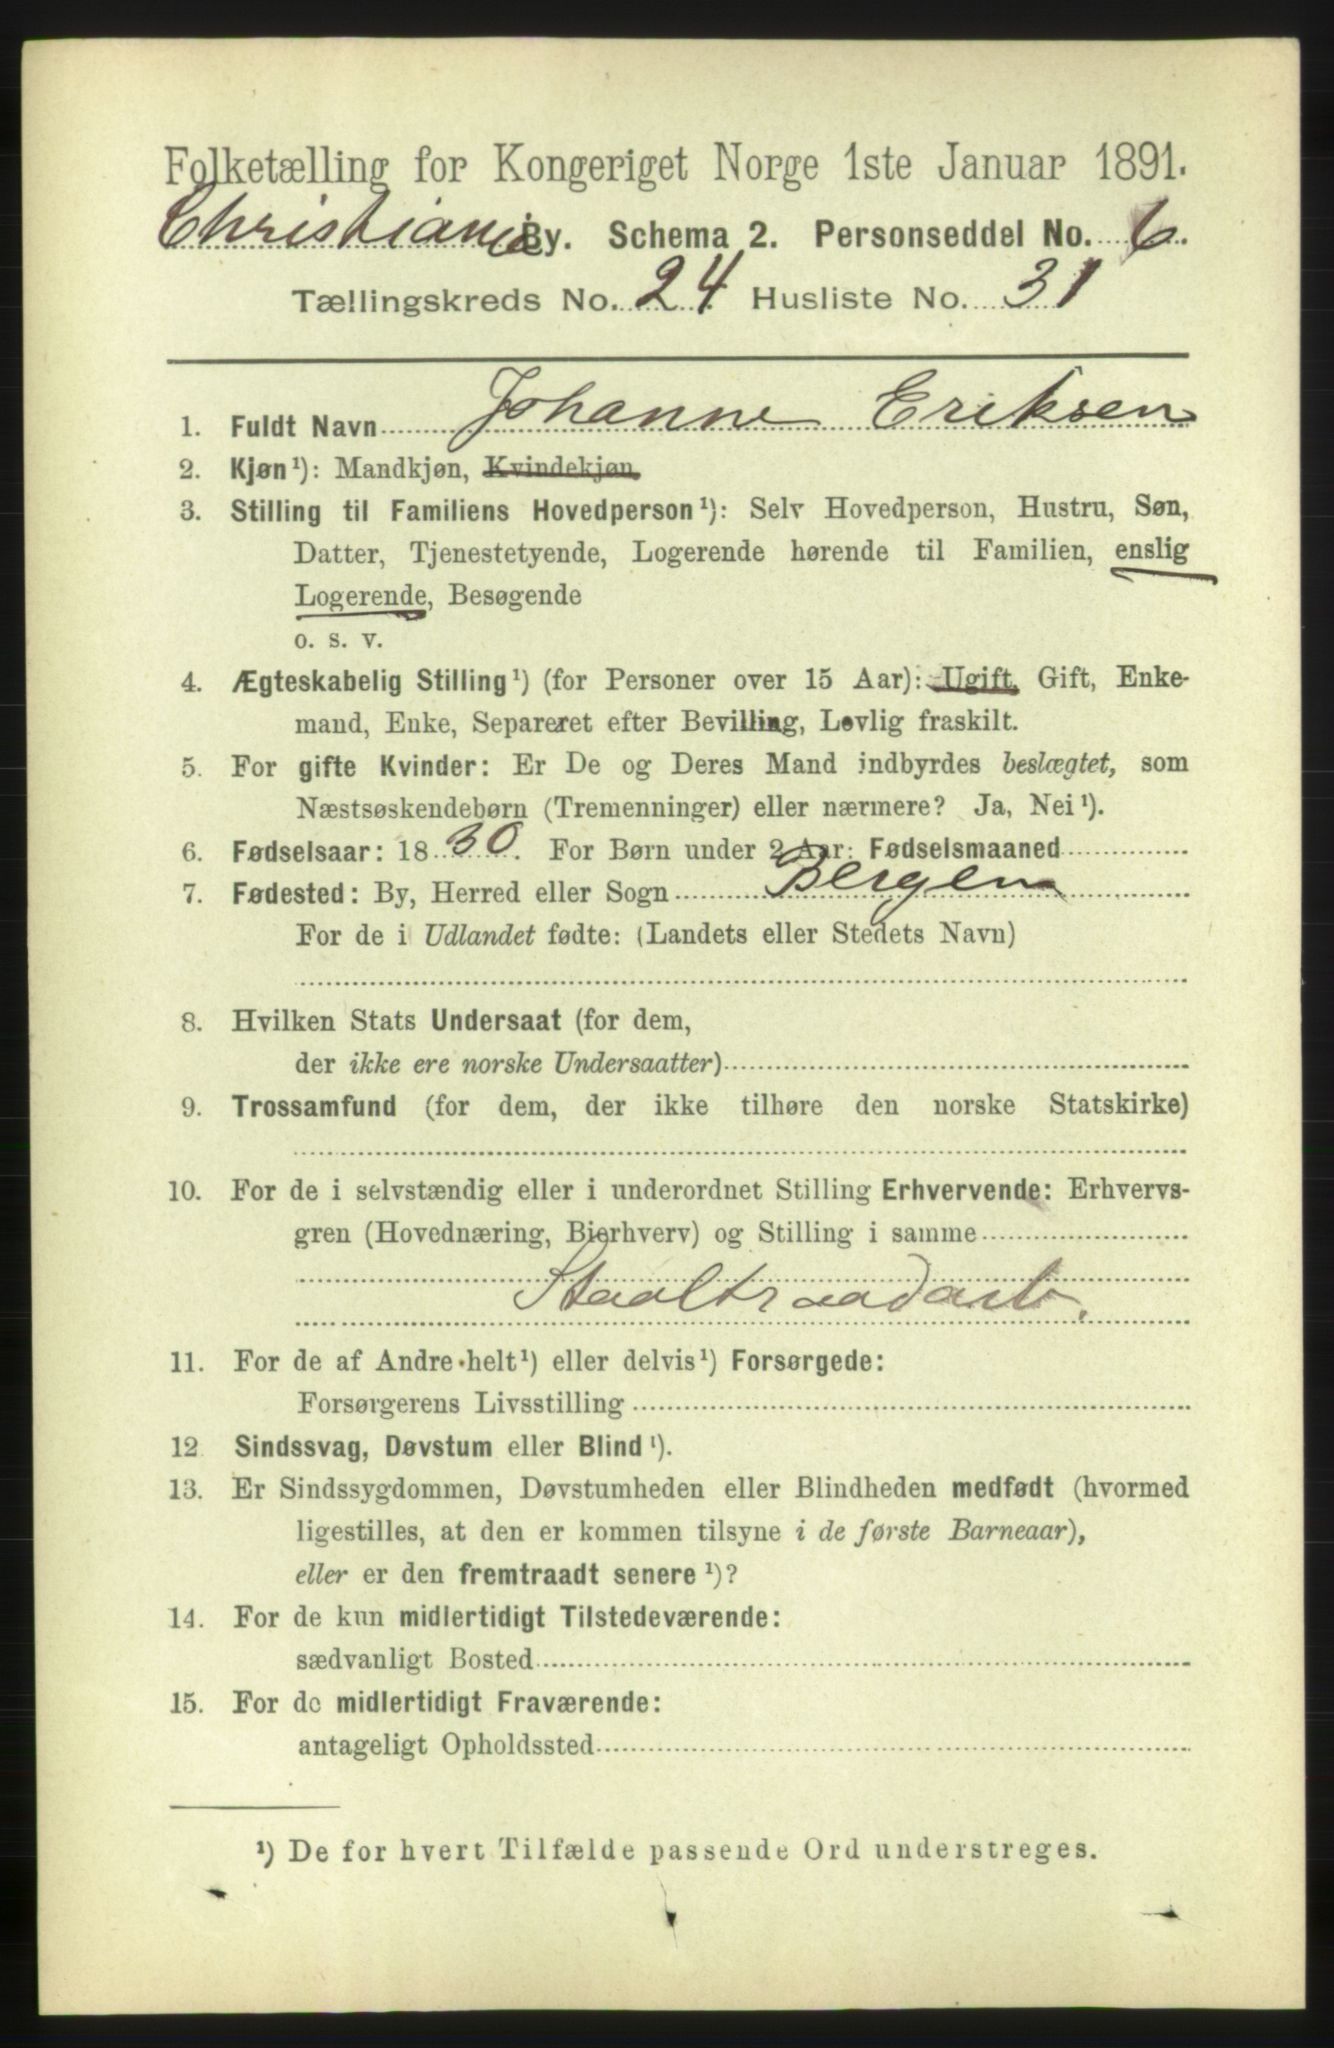 Folketælling for Kongeriget Norge 1ste Januar 1891.
Christiania By. Schema 2. Personseddel No. 6.
Tællingskreds No. 24 Husliste No. 31
1. Fuldt Navn Johanne Eriksen
2. Kjøn¹): Mandkjøn, Kvindekjøn
3. Stilling til Familiens Hovedperson¹): Selv Hovedperson, Hustru, Søn,
Datter, Tjenestetyende, Logerende hørende til Familien, enslig
Logerende, Besøgende
o. s. v.
4. Ægteskabelig Stilling¹) (for Personer over 15 Aar): Ugift, Gift, Enke-
mand, Enke, Separeret efter Bevilling, Lovlig fraskilt.
5. For gifte Kvinder: Er De og Deres Mand indbyrdes beslægtet, som
Næstsøskendebørn (Tremenninger) eller nærmere? Ja, Nei¹).
6. Fødselsaar: 1830. For Børn under 2 Aar: Fødselsmaaned
7. Fødested: By, Herred eller Sogn Bergen
For de i Udlandet fødte: (Landets eller Stedets Navn)
8. Hvilken Stats Undersaat (for dem,
der ikke ere norske Undersaatter)
9. Trossamfund (for dem, der ikke tilhøre den norske Statskirke)
10. For de i selvstændig eller i underordnet Stilling Erhvervende: Erhvervs-
gren (Hovednæring, Bierhverv) og Stilling i samme
Staaltraadarb.
11. For de af Andre helt¹) eller delvis¹) Forsørgede:
Forsørgerens Livsstilling
12 Sindssvag, Døvstum eller Blind¹).
13. Er Sindssygdommen, Døvstumheden eller Blindheden medfødt (hvormed
ligestilles, at den er kommen tilsyne i de første Barneaar),
eller er den fremtraadt senere¹)?
14. For de kun midlertidigt Tilstedeværende:
sædvanligt Bosted
15. For de midlertidigt Fraværende:
antageligt Opholdssted
¹) De for hvert Tilfælde passende Ord understreges.